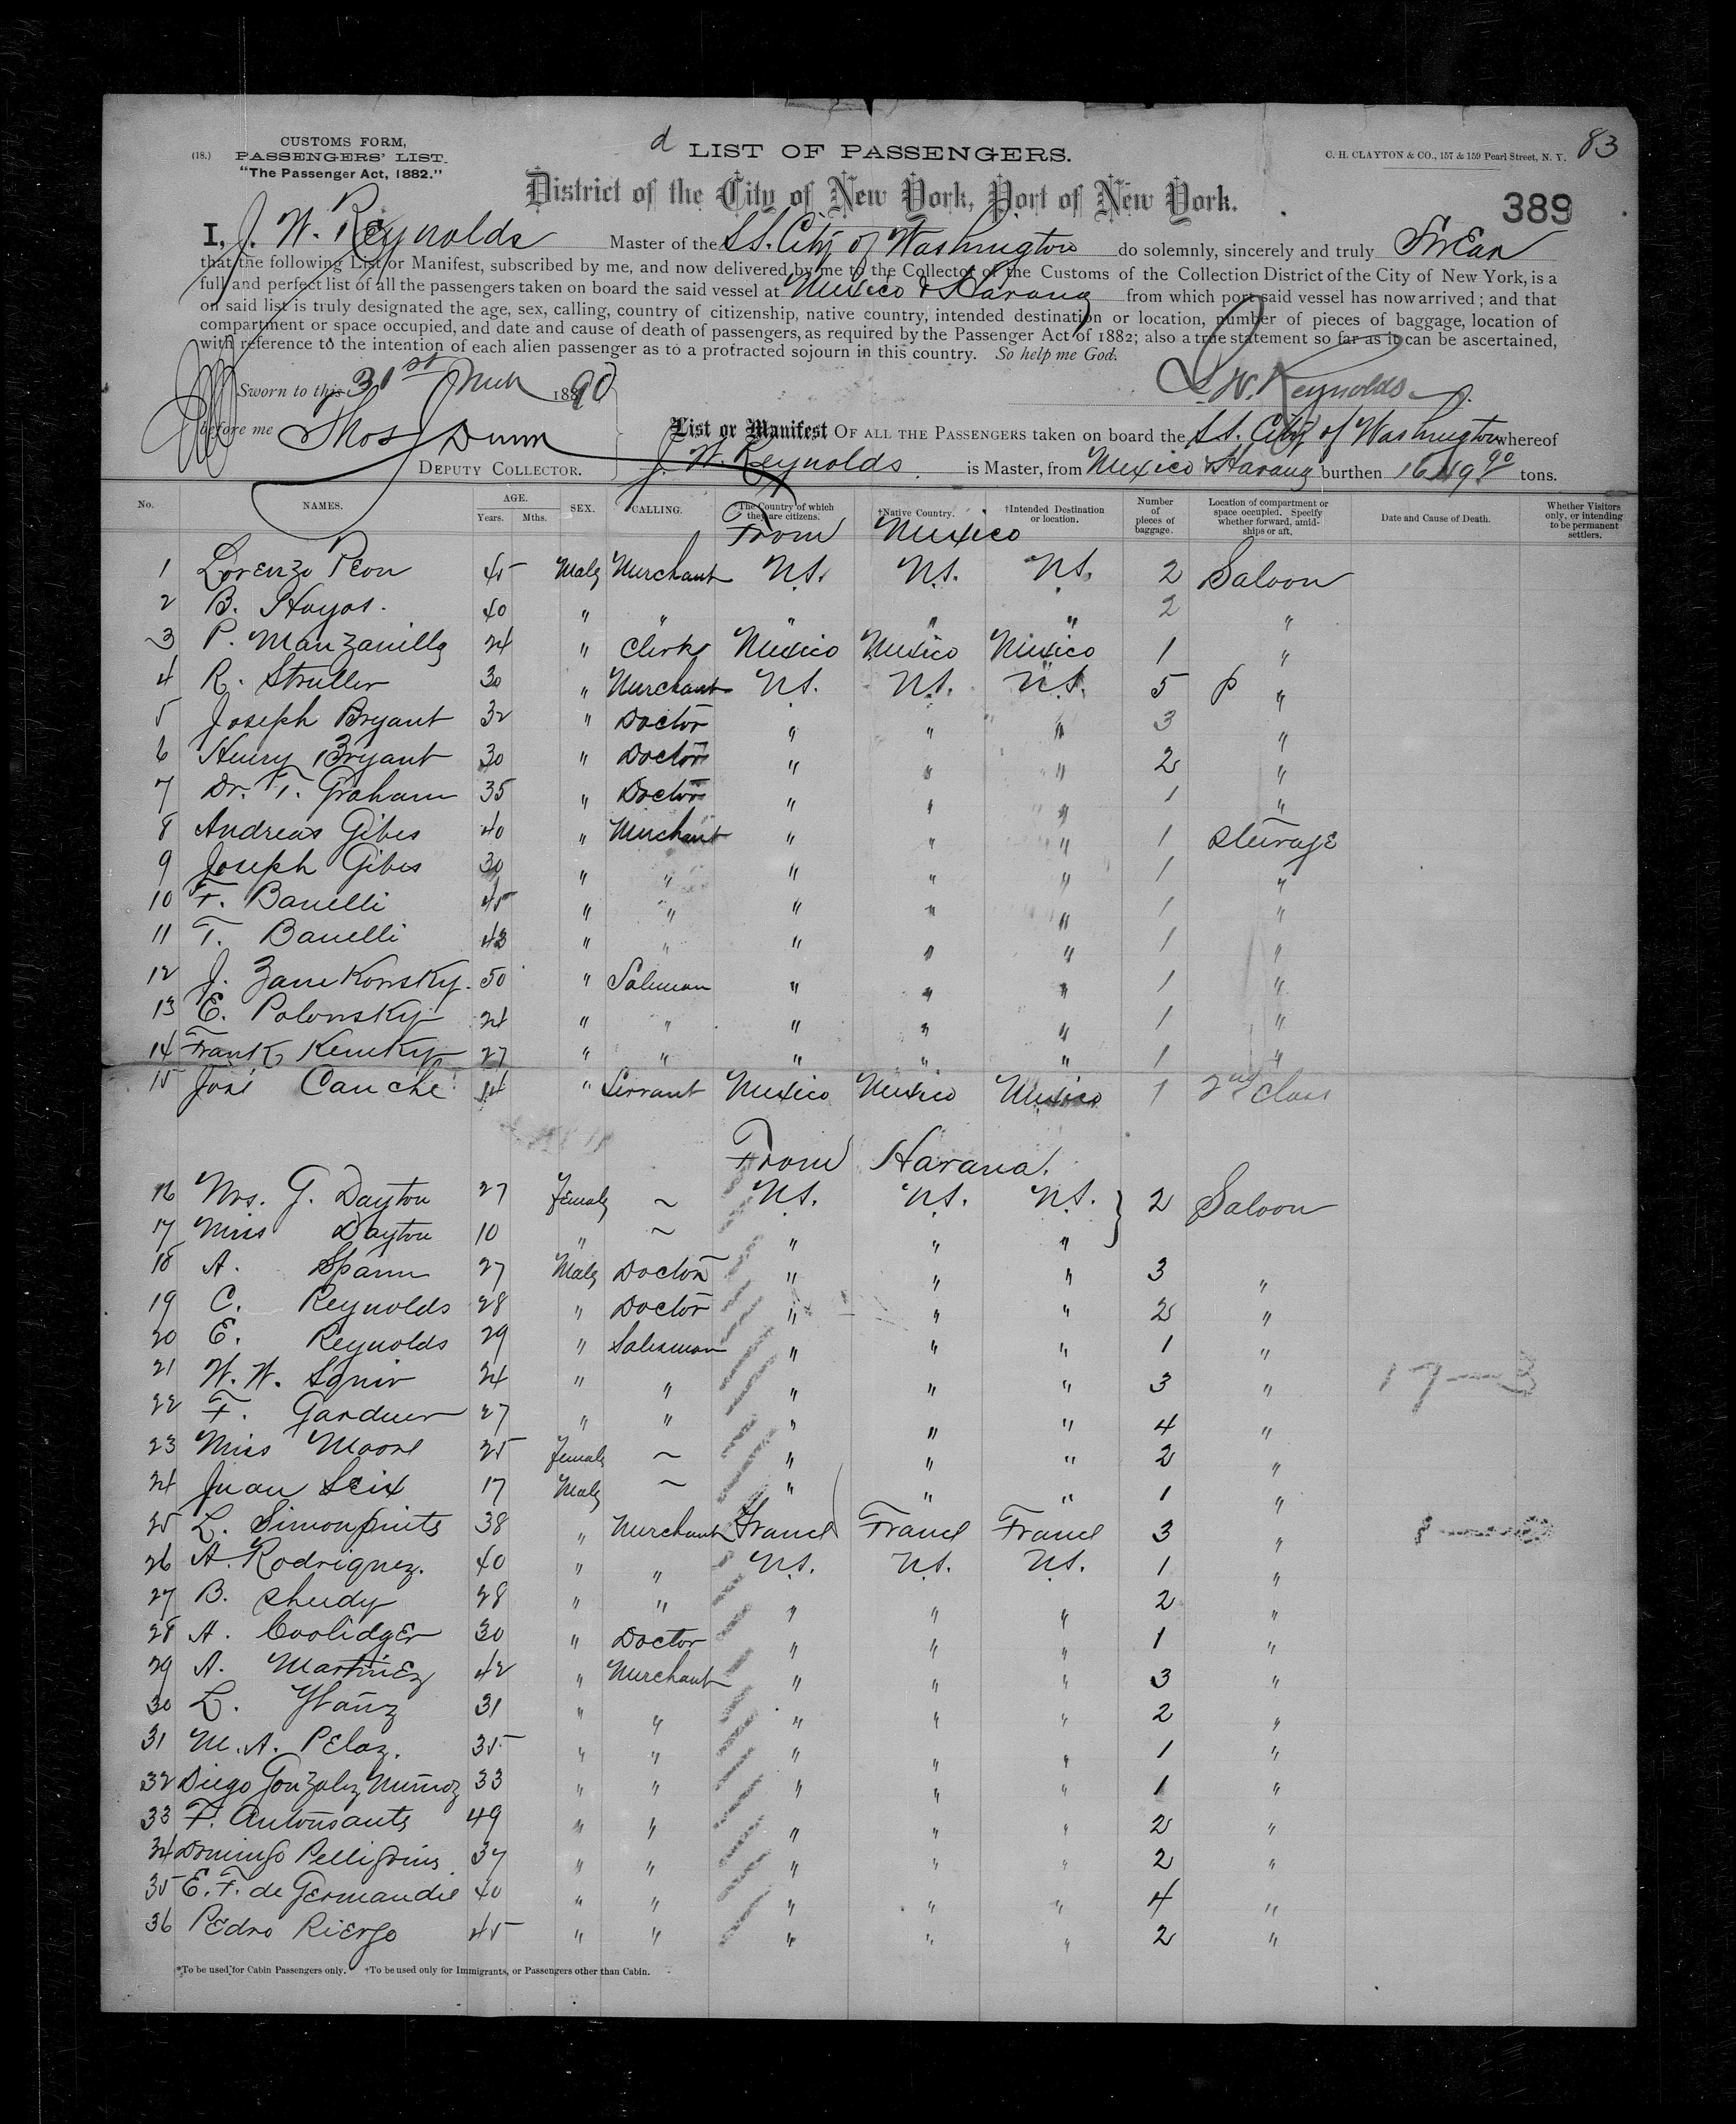 CUSTOMS FORM,
(18.) PASSENGERS' LIST.
"The Passenger Act, 1882."
d LIST OF PASSENGERS.
C. H. CLAYTON & CO., 157 & 159 Pearl Street, N. Y. 83
District of the City of New York, Port of New York.
389
I, J. W. Reynolds Master of the S.S. City of Washington do solemnly, sincerely and truly Swear
that the following List or Manifest, subscribed by me, and now delivered by me to the Collector of the Customs of the Collection District of the City of New York, is a
full and perfect list of all the passengers taken on board the said vessel at Mexico & Havana from which port said vessel has now arrived; and that
on said list is truly designated the age, sex, calling, country of citizenship, native country, intended destination or location, number of pieces of baggage, location of
compartment or space occupied, and date and cause of death of passengers, as required by the Passenger Act of 1882; also a true statement so far as it can be ascertained,
with reference to the intention of each alien passenger as to a protracted sojourn in this country. So help me God.
Sworn to this 31st Mch 1890
J. W. Reynolds
before me Thos Dunn
DEPUTY COLLECTOR.
List or Manifest OF ALL THE PASSENGERS taken on board the S.S. City of Washington whereof
J. W. Reynolds is Master, from Mexico & Havana burthen tons.
No. NAMES. AGE. Years. Mths. SEX. CALLING. *The Country of which they are citizens. †Native Country. †Intended Destination or location. Number of pieces of baggage. Location of compartment or space occupied. Specify whether forward, amidships or aft. Date and Cause of Death. Whether Visitors only, or intending to be permanent settlers.
From Mexico
1 Lorenzo Peon 45 Male Merchant U.S. U.S. U.S. 2 Saloon
2 B. Hoyos. 40 " " " " " 2 "
3 P. Manzanilla 24 " Clerk Mexico Mexico Mexico 1 "
4 R. Struller 30 " Merchant U.S. U.S. U.S. 5 "
5 Joseph Bryant 32 " Doctor " " " 3 "
6 Henry Bryant 30 " Doctor " " " 2 "
7 Dr. T. Graham 35 " Doctor " " " 1 "
8 Andreas Gibes 40 " Merchant " " " 1 Steerage
9 Joseph Gibes 30 " " " " " 1 "
10 F. Banelli 45 " " " " " 1 "
11 T. Banelli 43 " " " " " 1 "
12 J. Zamkonsky. 50 " Saleman " " " 1 "
13 E. Polonsky 24 " " " " " 1 "
14 Frank Kemky 27 " " " " " 1 "
15 José Canche 14 " Servant Mexico Mexico Mexico 1 2nd Class
From Havana.
16 Mrs. G. Dayton 27 Female ~ U.S. U.S. U.S. } 2 Saloon
17 Miss Dayton 10 " ~ " " "
18 A. Spann 27 Male Doctor " " " 3 "
19 C. Reynolds 28 " Doctor " " " 2 "
20 E. Reynolds 29 " Salesman " " " 1 "
21 W. W. Squir 24 " " " " " 3 "
22 F. Gardner 27 " " " " " 4 "
23 Miss Moore 25 Female ~ " " " 2 "
24 Juan Seix 17 Male ~ " " " 1 "
25 L. 38 " Merchant France France France 3 "
26 A. Rodriguez. 40 " " U.S. U.S. U.S. 1 "
27 B. Shudy 28 " " " " " 2 "
28 A. Coolidger 30 " Doctor " " " 1 "
29 A. Martinez 42 " Merchant " " " 3 "
30 L. Ybañz 31 " " " " " 2 "
31 M. A. Pelaz. 35 " " " " " 1 "
32 Diego Gonzalez Muñoz 33 " " " " " 1 "
33 F. 49 " " " " " 2 "
34 Domingo Pelligrins 37 " " " " " 2 "
35 E. F. de Germandie 40 " " " " " 4 "
36 Pedro Riergo 45 " " " " " 2 "
*To be used for Cabin Passengers only. †To be used only for Immigrants, or Passengers other than Cabin.